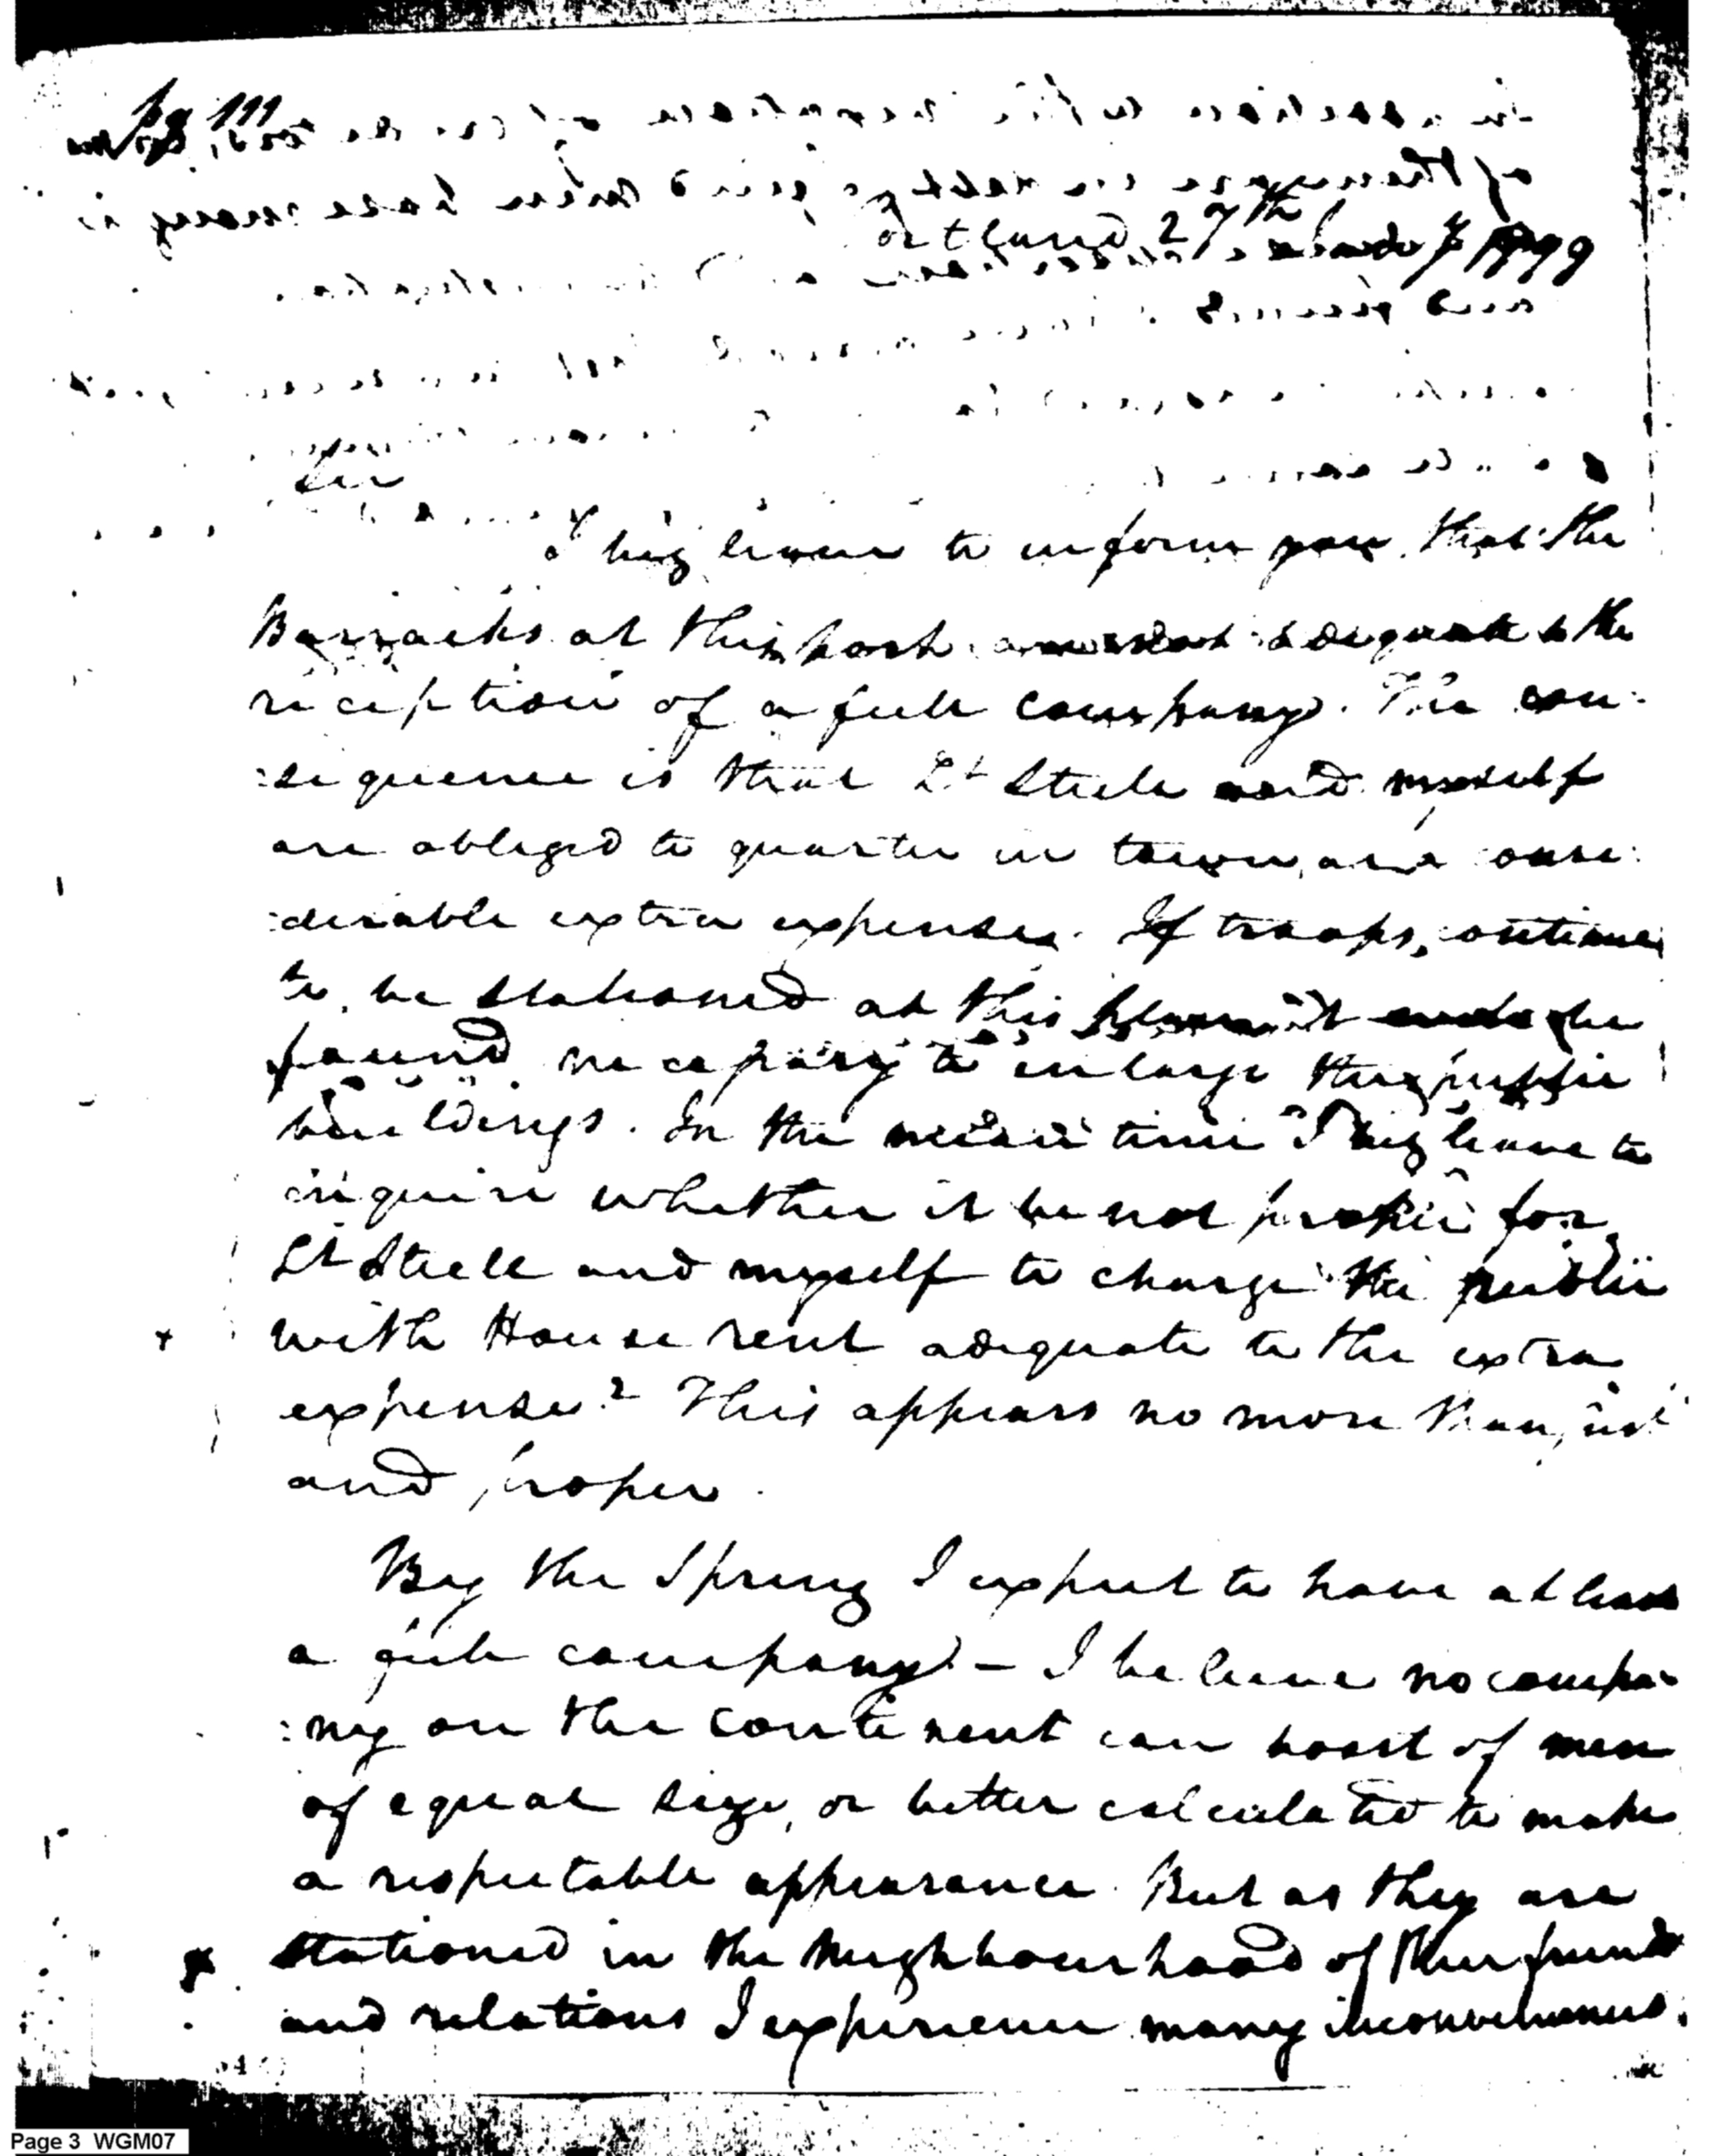 pg. 111
Portland 27th 1799
Sir
I beg leave to inform you that the
Barracks at this port are not adequate to the
reception of a full company. The con:
:sequence is that Lt Steele and myself
are obliged to quarter in town, at a consi:
:derable extra expense. If troops, continue
to be stationed at this it be
found necessary to enlarge the public
buildings. In the mean time I beg leave to
inquire whether it be not proper for
Lt Steele and myself to charge the public
with House rent adequate to the extra
expense? This appears no more than just
and proper.
By the Spring I expect to have at least
a full company – I believe no compa:
:ny on the continent can boast of men
of equal size, or better calculated to make
a respectable appearance. But as they are
stationed in the Neighbourhood of their friends
and relations I experience many inconveniences.
Page 3 WGM07